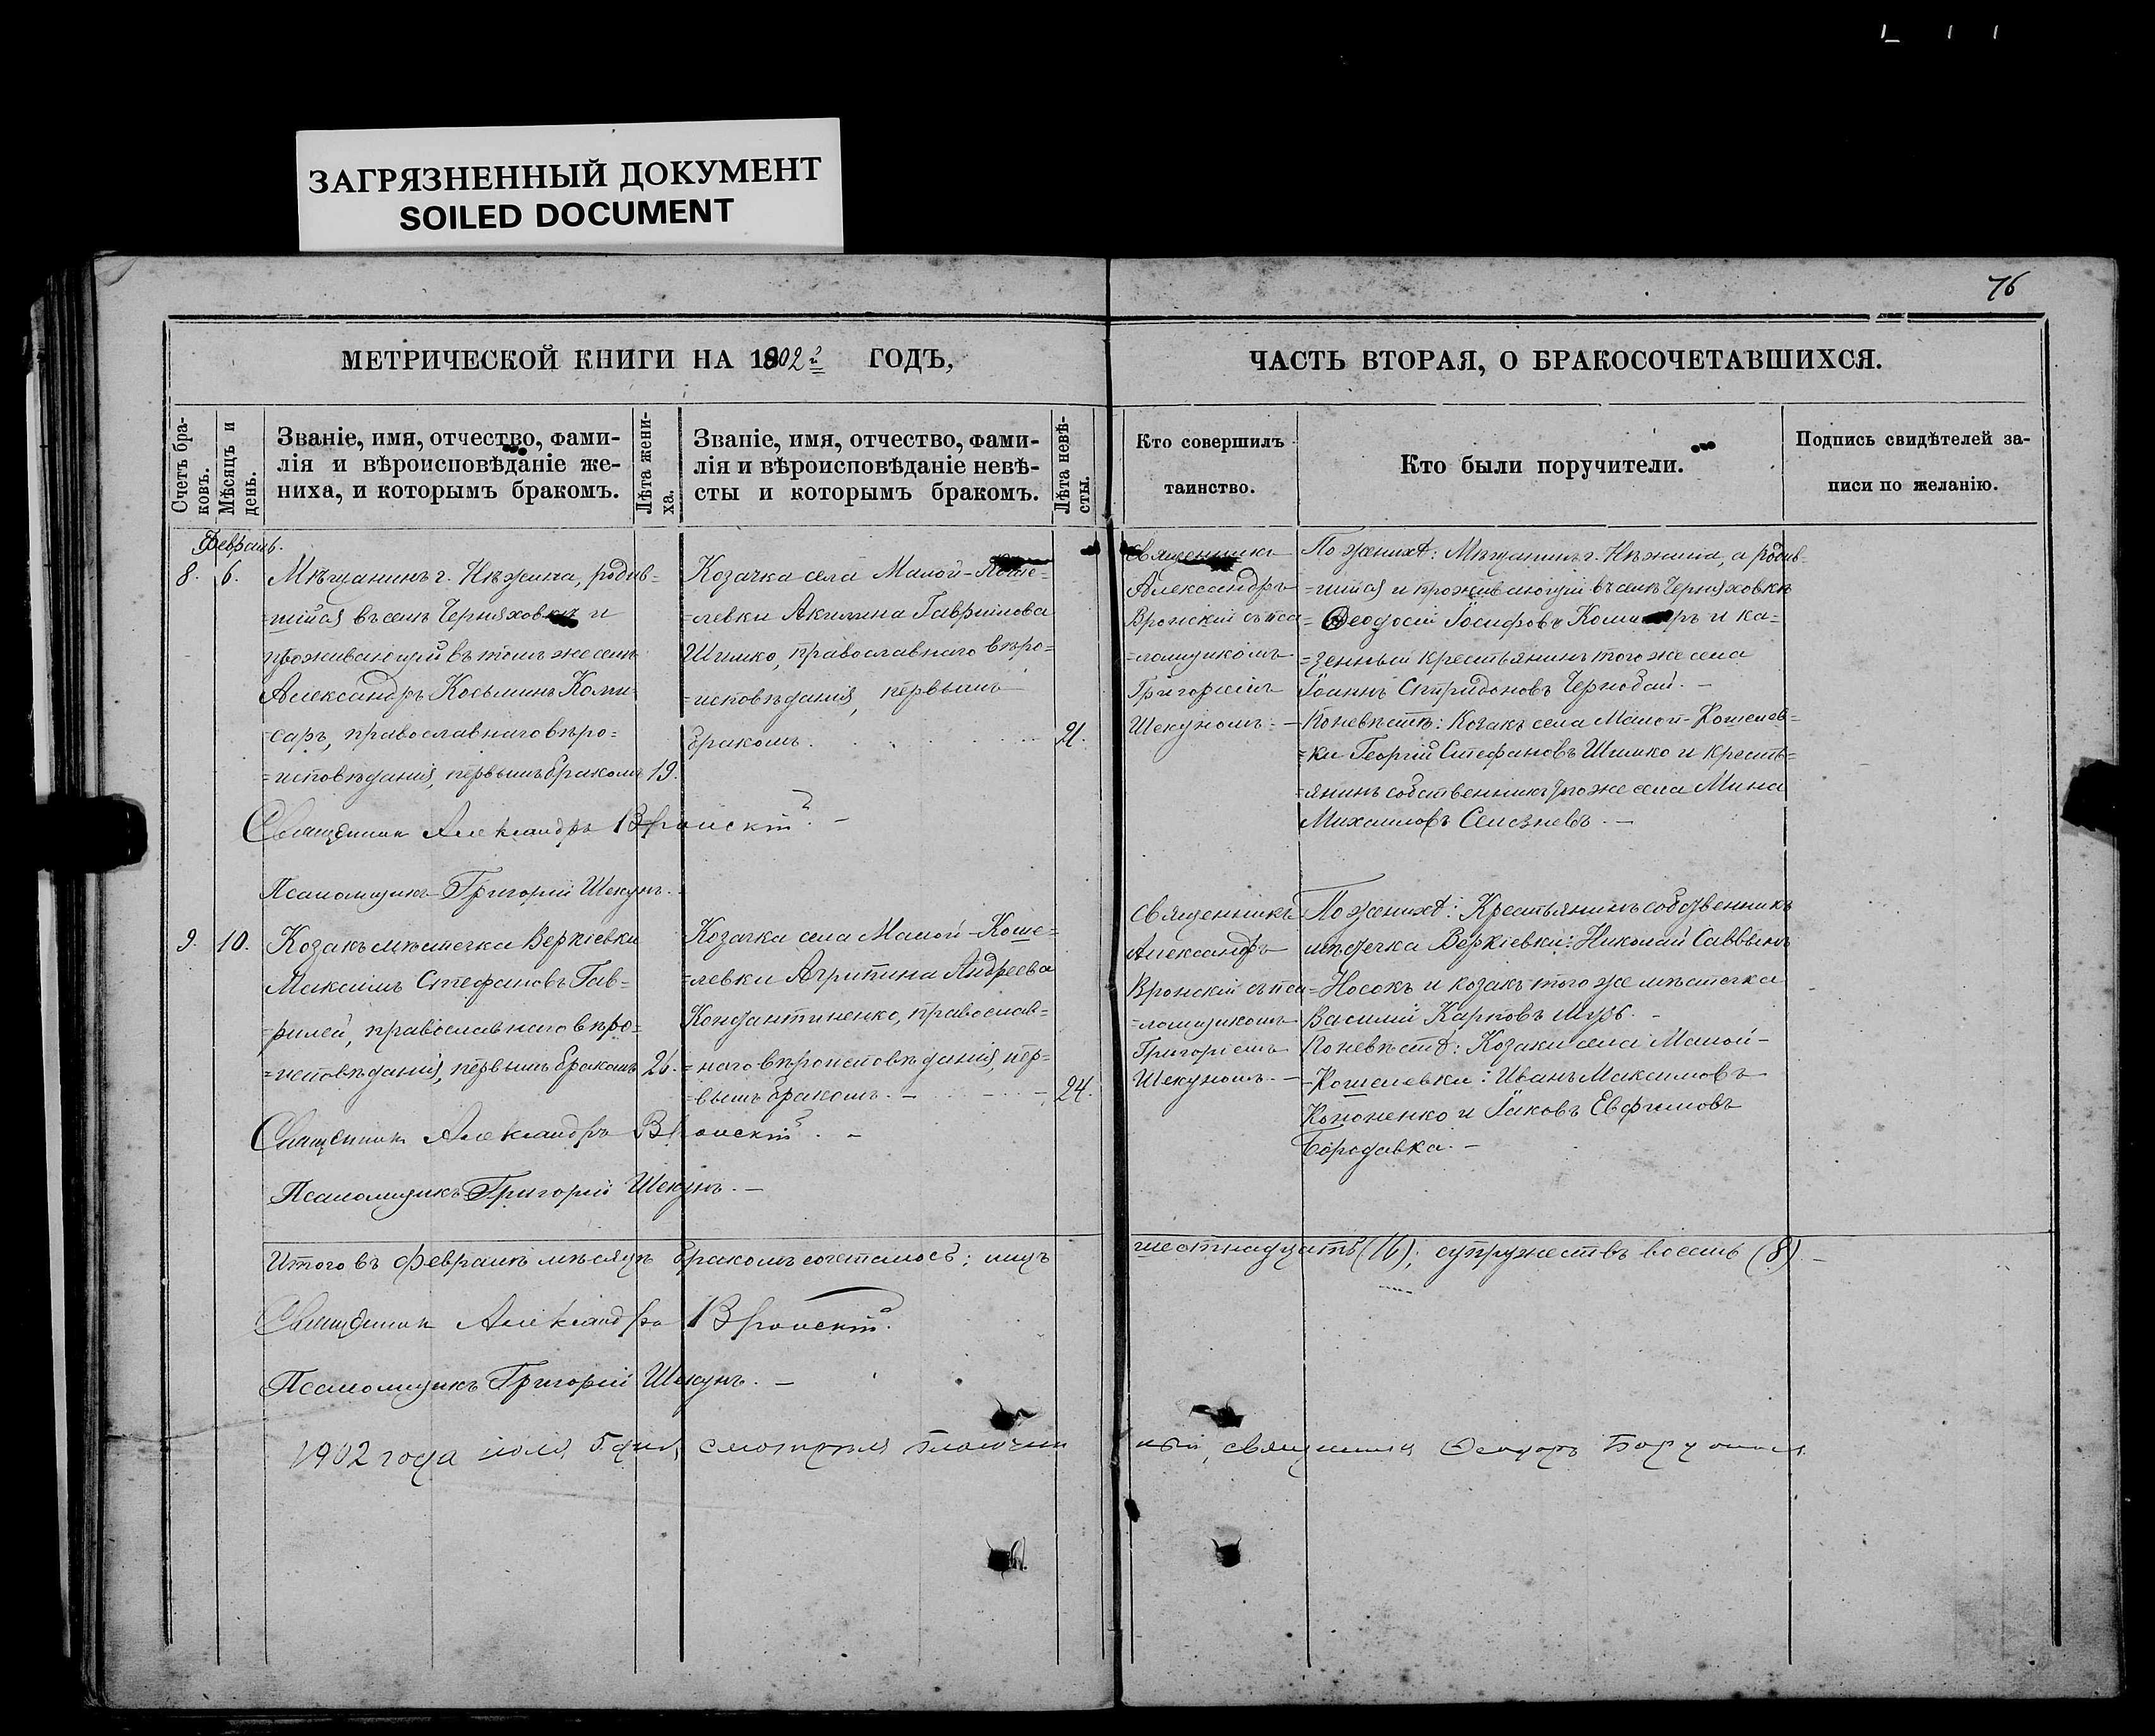 76
ЗАГРЯЗНЕННЫЙ ДОКУМЕНТ
SOILED DOCUMENT
МЕТРИЧЕСКОЙ КНИГИ НА 1902 ГОДЪ,
ЧАСТЬ ВТОРАЯ, О БРАКОСОЧЕТАВШИХСЯ.
Счетъ бра-
ковъ.
Мѣсяцъ и
день.
Званіе, имя, отчество, фами-
лія и вѣроисповѣданіе же-
ниха, и которымъ бракомъ.
Лѣта жени-
ха.
Званіе, имя, отчество, фами-
лія и вѣроисповѣданіе невѣ-
сты и которымъ бракомъ.
Лѣта невѣ-
сты.
Кто совершилъ
таинство.
Кто были поручители.
Подпись свидѣтелей за-
писи по желанію.
Февраль.
8. 6.
Мѣщанинъ г. Нѣжина, родив=
=шійся въ селѣ Черняховкѣ и
проживающій въ томъ же селѣ
Александръ Косьминъ Коми-
саръ, православнаго вѣро=
=исповѣданія, первымъ бракомъ 19.
Козачка села Малой-Коше=
=левки Акилина Гаврилова
Шишко, православнаго вѣро=
=исповѣданія, первымъ
бракомъ. 21.
Священникъ
Александръ
Вронскій съ пса=
=ломщикомъ
Григоріемъ
Шекуномъ. -
По женихѣ: Мѣщанинъ г. Нѣжина, а родив=
=шійся и проживающій въ селѣ Черняховкѣ
Ѳеодосій Іосифовъ Комисаръ и ка=
=зенный крестьянинъ того же села
Іоаннъ Спиридоновъ Чернобай. -
По невѣстѣ: Козакъ села Малой-Кошелев=
=ки Георгій Стефановъ Шишко и кресть=
=янинъ собственникъ того же села Мина
Михаиловъ Селезневъ. -
Священникъ Александръ Вронскій. -
Псаломщикъ Григорій Шекунъ.
9. 10.
Козакъ мѣстечка Веркіевки
Максимъ Стефановъ Гав=
=рилей, православнаго вѣро=
=исповѣданія, первымъ бракомъ 26.
Козачка села Малой-Коше=
=левки Агрипина Андреева
Константиненко, православ=
=наго вѣроисповѣданія, пер=
=вымъ бракомъ. - 24.
Священникъ
Александръ
Вронскій съ пса=
=ломщикомъ
Григоріемъ
Шекуномъ. -
По женихѣ: Крестьянинъ собственникъ
мѣстечка Веркіевки: Николай Саввинъ
Носокъ и козакъ того же мѣстечка
Василій Карповъ Музь. -
По невѣстѣ: Козаки села Малой-
-Кошелевки: Иванъ Максимовъ
Кононенко и Іаковъ Евфимовъ
Бородавка. -
Священникъ Александръ Вронскій. -
Псаломщикъ Григорій Шекунъ. -
Итого въ Февралѣ мѣсяцѣ бракомъ сочеталось: лицъ шестнадцать (16); супружествъ восемь (8). -
Священникъ Александръ Вронскій.
Псаломщикъ Григорій Шекунъ. -
1902 года 5 дня, благочинный, священникъ Ѳеодоръ